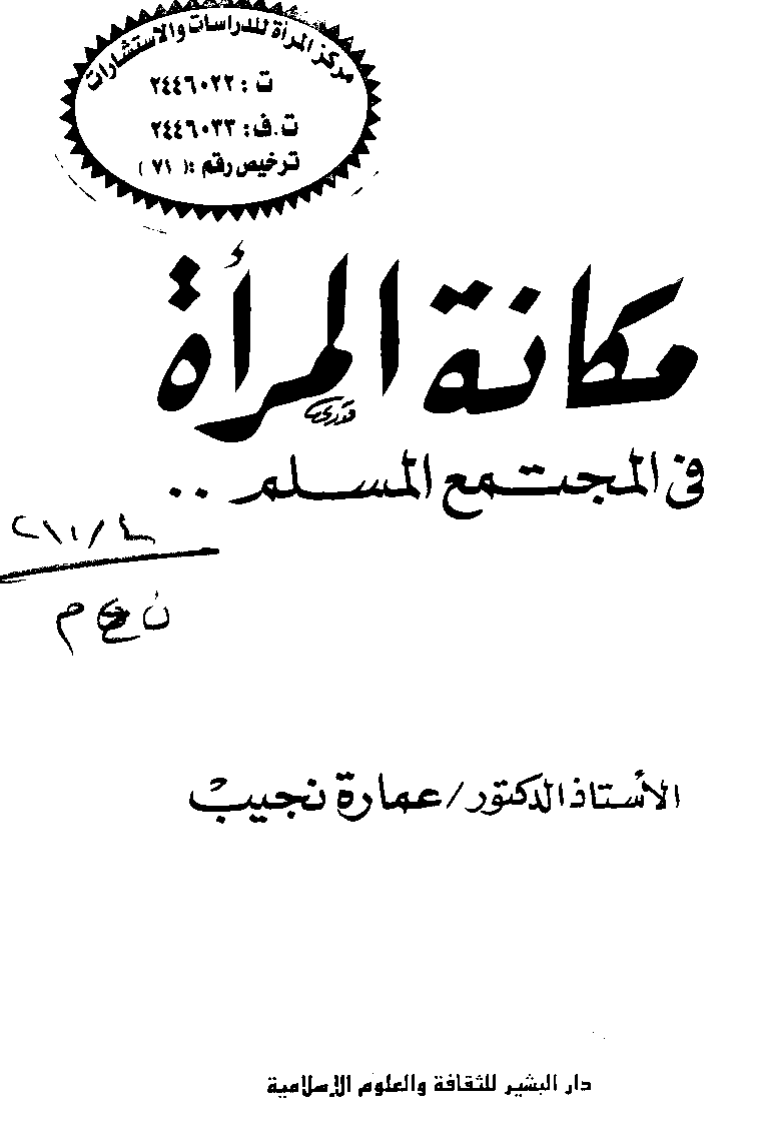 مركز المرأة للدراسات والاستشارات
ت : ٢٤٤٦٠٢٢
ت.ف: ٢٤٤٦٠٣٣
ترخيص رقم :( ٧١ )
مكانة المرأة
فى المجتمع المسلم ..
ن ع م
الأستاذ الدكتور / عمارة نجيب
دار البشير للثقافة والعلوم الإسلامية